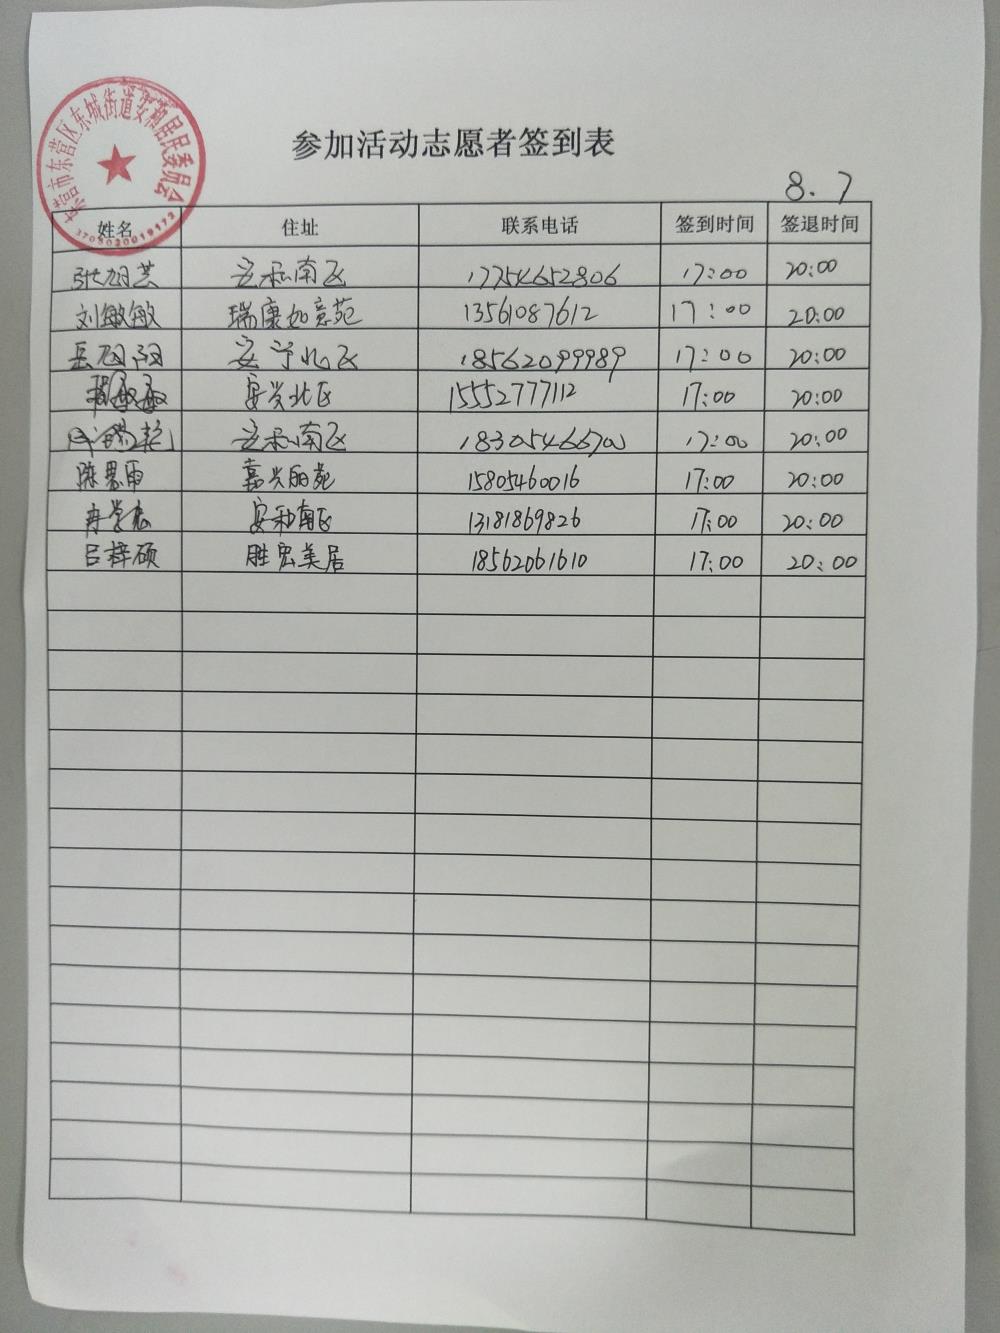 东营市东营区东城街道安和居民委员会
3705020019172
参加活动志愿者签到表
8.7
姓名 住址 联系电话 签到时间 签退时间
安和南区 17754652806 17:00 20:00
刘敏敏 瑞康如意苑 13561087612 17:00 20:00
岳阳阳 安宁北区 18562099989 17:00 20:00
安兴北区 15552777112 17:00 20:00
安和南区 17:00 20:00
陈思雨 嘉兴丽苑 15805460016 17:00 20:00
冉学志 安和南区 13181869826 17:00 20:00
吕梓硕 胜宏美居 18562061610 17:00 20:00